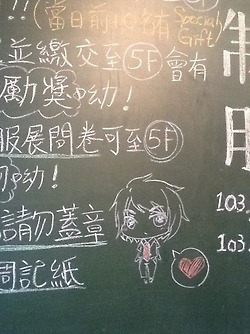 !!(當日前 有 Special Gift)
並繳交至 5F 會有
勵獎呦!
服展問卷可至 5F
呦!
請勿蓋章
週記紙
制
服
103.
103.